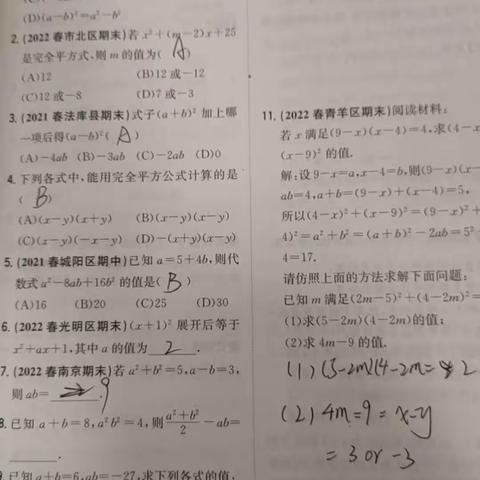 (D)(a-b)²=a²-b²
2.(2022春市北区期末)若 x²+(m-2)x+25
是完全平方式,则 m 的值为( A )
(A)12 (B)12 或 -12
(C)12 或 -8 (D)7 或 -3
3.(2021春法库县期末)式子(a+b)² 加上哪
一项后得(a-b)²( A )
(A)-4ab (B)-3ab (C)-2ab (D)0
4.下列各式中,能用完全平方公式计算的是
( B )
(A)(x-y)(x+y) (B)(x-y)(x-y)
(C)(x-y)(-x-y) (D)-(x+y)(x-y)
5.(2021春城阳区期中)已知 a=5+4b,则代
数式 a²-8ab+16b² 的值是( B )
(A)16 (B)20 (C)25 (D)30
6.(2022春光明区期末)(x+1)² 展开后等于
x²+ax+1,其中 a 的值为 2 .
7.(2022春南京期末)若 a²+b²=5,a-b=3,
则 ab=
8.已知 a+b=8,a²b²=4,则 (a²+b²)/2 -ab=
9.已知 a+b=6,ab=-27,求下列各式的值.
11.(2022春青羊区期末)阅读材料:
若 x 满足(9-x)(x-4)=4,求(4-x
(x-9)² 的值.
解:设 9-x=a,x-4=b,则(9-x)(x-
ab=4,a+b=(9-x)+(x-4)=5,
所以(4-x)²+(x-9)²=(9-x)²+
4)²=a²+b²=(a+b)²-2ab=5²
4=17.
请仿照上面的方法求解下面问题:
已知 m 满足(2m-5)²+(4-2m)²=
(1)求(5-2m)(4-2m)的值;
(2)求 4m-9 的值.
(1)(5-2m)(4-2m= 2
(2)4m=9=x-y
=3 or -3